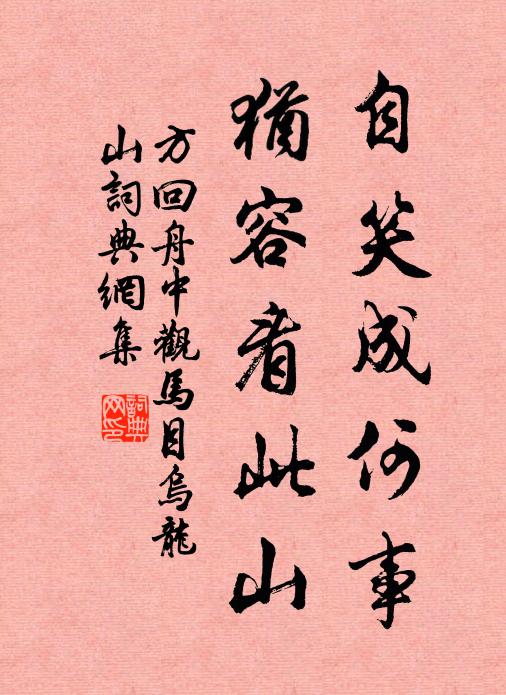 自笑成何事
猶容看此山
方回舟中觀馬目烏龍
山詞典網集
詞典
网印